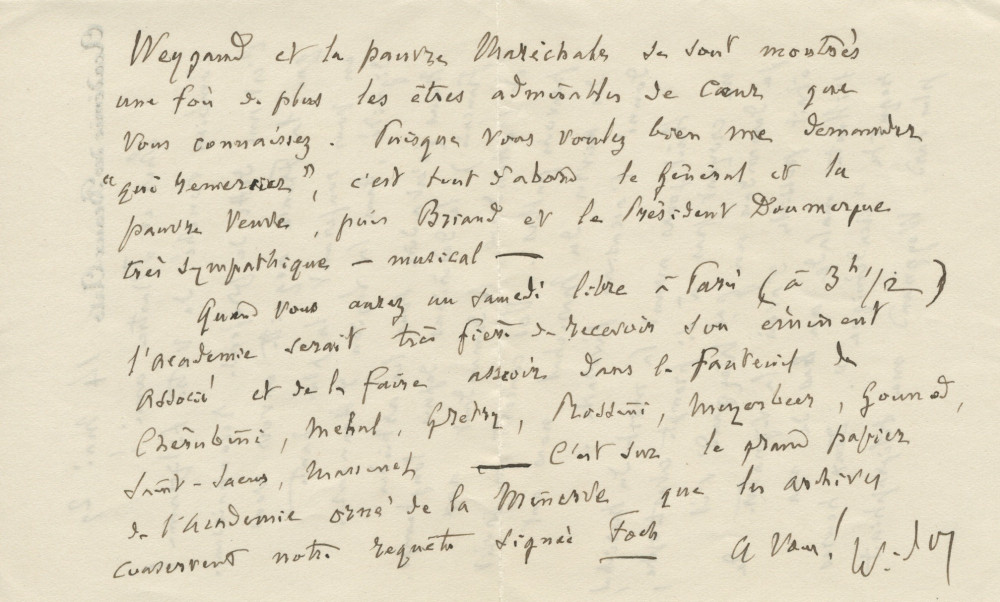 Weygand et la pauvre Maréchale se sont montrés
une fois de plus les êtres admirables de Cœur que
vous connaissez. Puisque vous voulez bien me demander
"qui remercier", c'est tout d'abord le Général et la
pauvre Veuve, puis Briand et le Président Doumergue
très sympathique – musical —
Quand vous aurez un samedi libre à Paris (à 3h 1/2)
l'Academie serait très fière de recevoir son éminent
Associé et de le faire asseoir dans le fauteuil de
Cherubini, Mehul, Gretry, Rossini, Meyerbeer, Gounod,
Saint-Saens, Massenet — C'est sur le grand papier
de l'Academie orné de la Minerve que les archives
conservent notre requête signée Foch
A Vous!